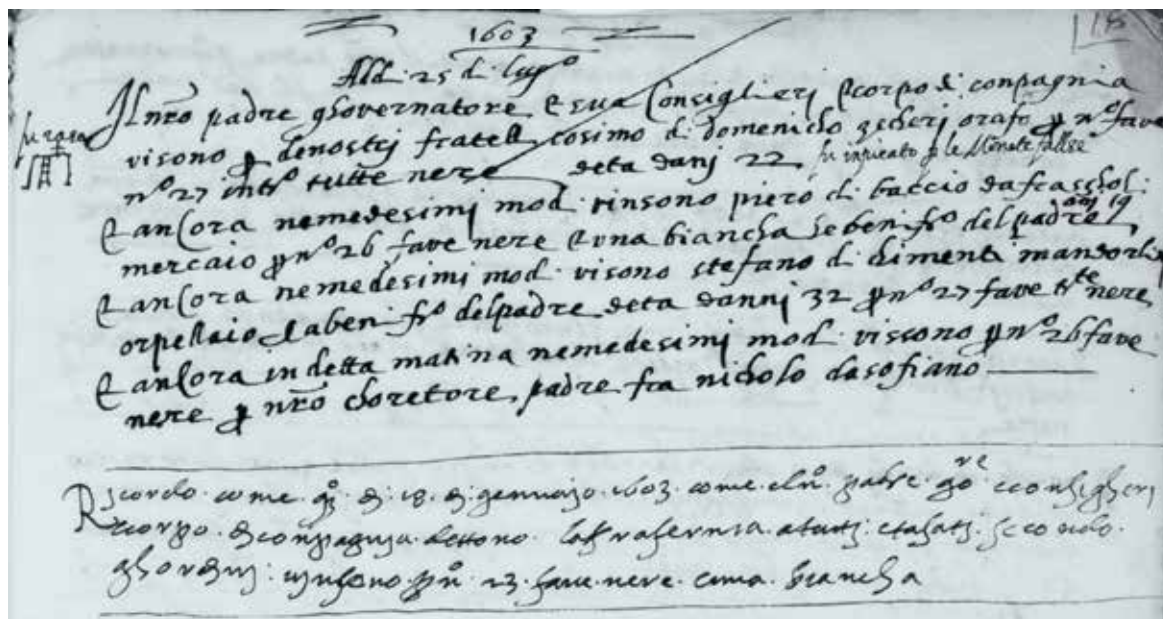 1603
18
Add: 25 di lugo
Il nro padre ghovernatore e sua Consiglieri e corpo di conpagnia
visono p de nostri fratelli cosimo di domenicho zecheri orafo p no fave
no 27 into tutte nere deta danj 22 fu inpicato p le Monete false
E ancora nemedesimi mod. vinsono piero di baccio da
anj 19
mercaio p no 26 fave nere e una biancha se beni fo del padre
E ancora nemedesimi mod. visono stefano di Chimenti
orpellaio la beni fo del padre deta danni 32 p no 27 fave tte nere
E ancora in detta matina nemedesimi mod. vissono p no 26 fave
nere p nro choretore padre fra nicholo da sofiano
Ricordo come di 18 di gennajo 1603 come padre gore e consiglieri
e corpo di conpagnia dettono a tutti secondo
ghordinj vinsono p no 23 fave nere e una biancha